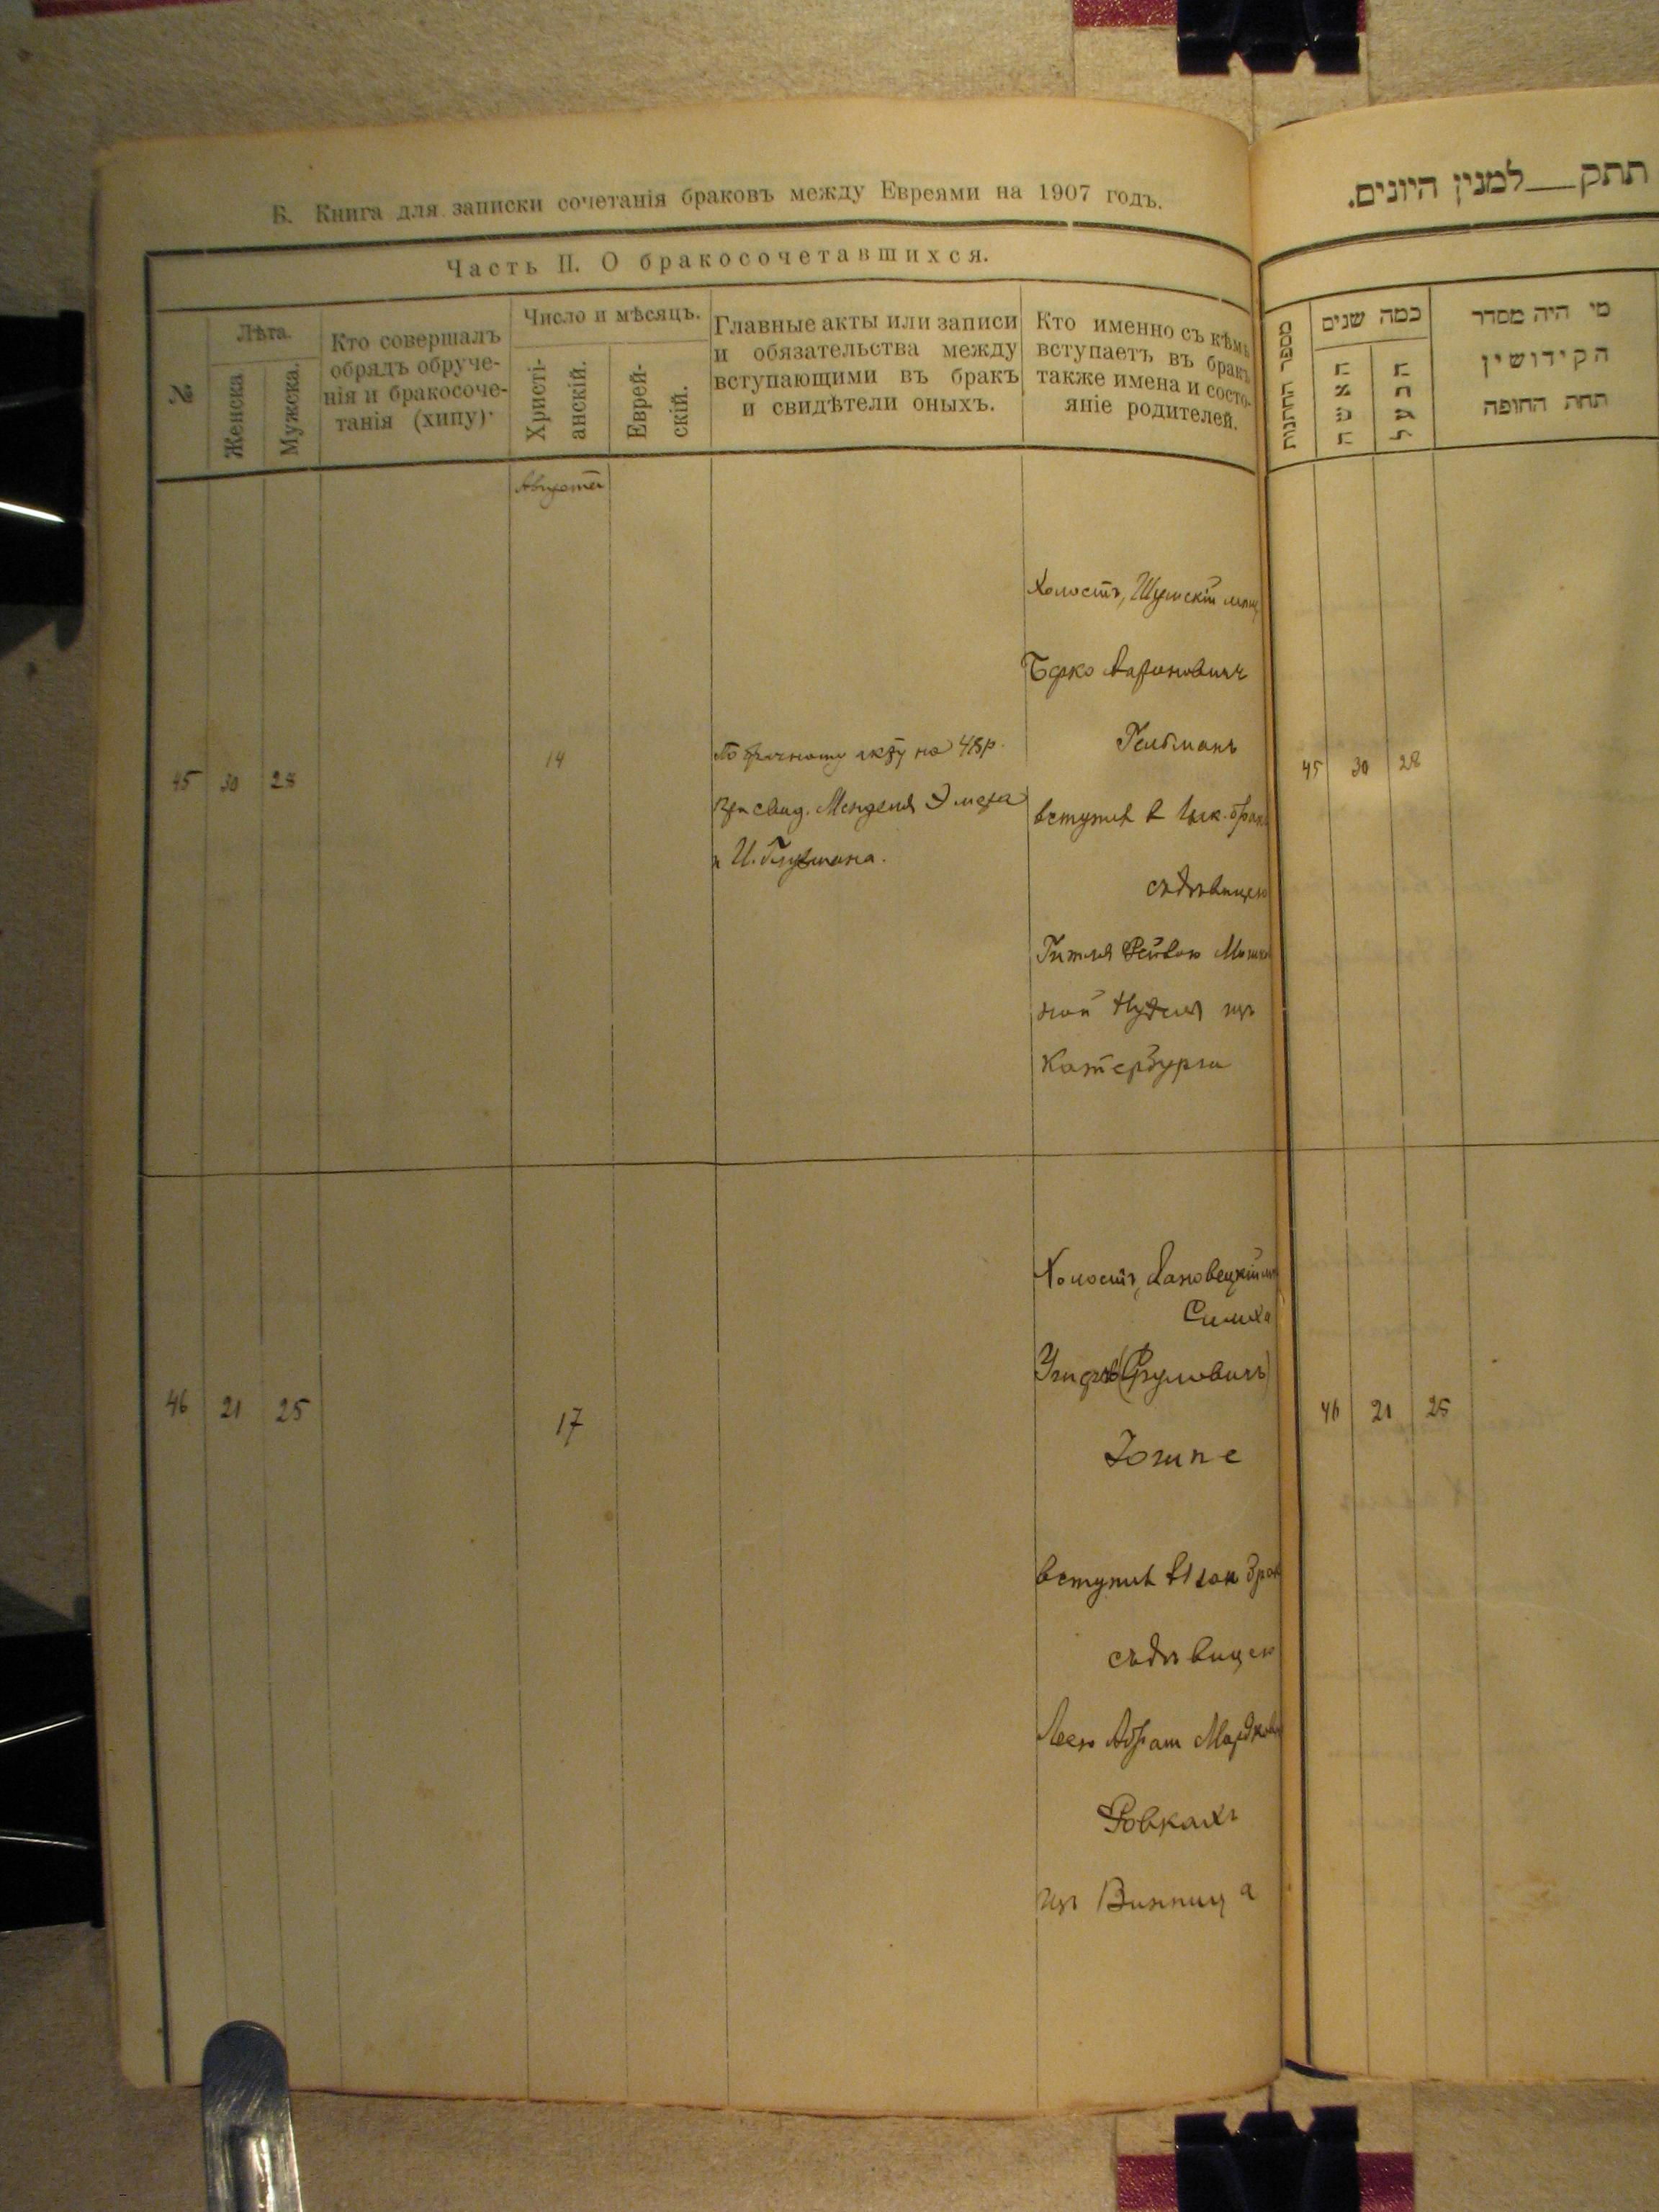 Б. Книга для записки сочетанія браковъ между Евреями на 1907 годъ.
Часть II. О бракосочетавшихся.
№
Лѣта.
Женска
Мужска.
Кто совершалъ
обрядъ обруче-
нія и бракосоче-
танія (хипу)·
Число и мѣсяцъ.
Христі-
анскій.
Еврей-
скій.
Главные акты или записи
и обязательства между
вступающими въ бракъ
и свидѣтели оныхъ.
Кто именно съ кѣмъ
вступаетъ въ бракъ
также имена и состо-
яніе родителей.
Августа
45 30 28
14
По брачному акту на 48р.
При свид. Менделя
и И.
Холостъ, Шумскій мѣщ
Берко Аароновичъ
Гельманъ
вступил в 1 зак. брак
съ дѣвицею
Гитля Рейвою Мошко
ной Нудля изъ
Катербурга
46 21 25
17
Холостъ, Лановецкій
Симха
(Сруловичъ)
вступил в 1 зак брак
съ дѣвицею
Лею Абрам Мордков
Ровкахъ
изъ Винница
תתק למנין היונים.
מספר החתונות
כמה שנים
האשה
הבעל
מי היה מסדר
הקידושין
תחת החופה
45 30 28
46 21 25